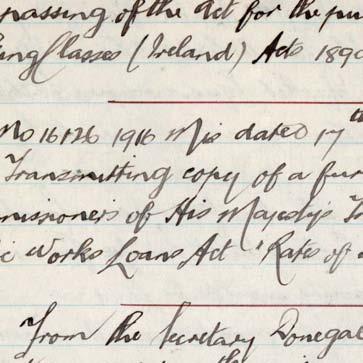 passing of the Act for the pu
ing Classes (Ireland) Acts 1890
No 16126 1916 Mis dated 17th
Transmitting copy of a fur
missioners of His Majestys Tr
ic Works Loans Act "Rates of
From the Secretary Donegal